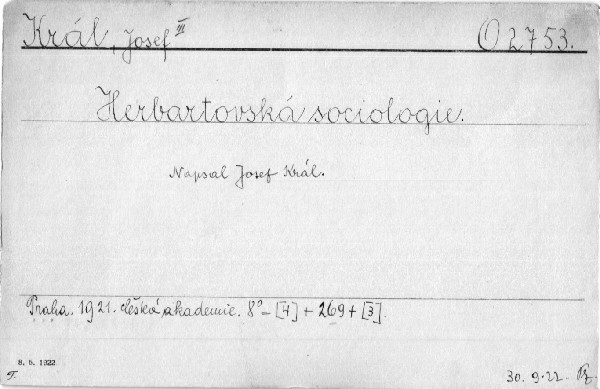 Král, Josef III O 2753.
Herbartovská sociologie.
Napsal Josef Král.
Praha. 1921. Česká akademie. 8° – [4] + 269 + [3].
8. 5. 1922
T. 30. 9. 22.